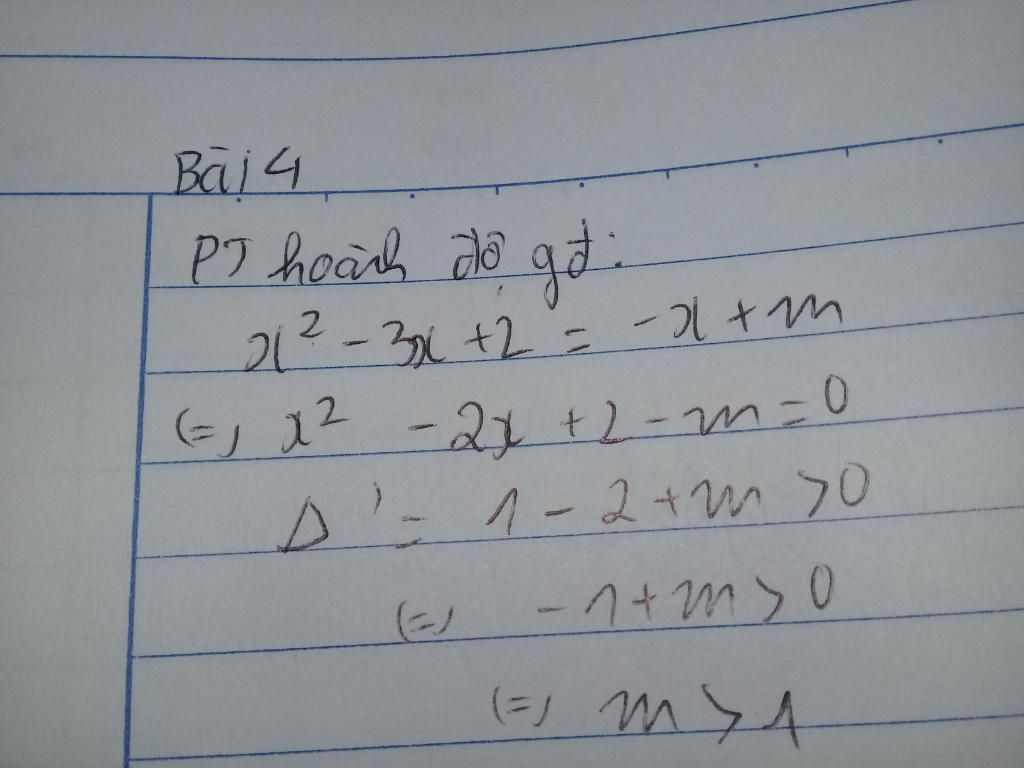 Bài 4
PT hoành độ gđ:
x² - 3x + 2 = -x + m
(=) x² - 2x + 2 - m = 0
Δ' = 1 - 2 + m > 0
(=) -1 + m > 0
(=) m > 1